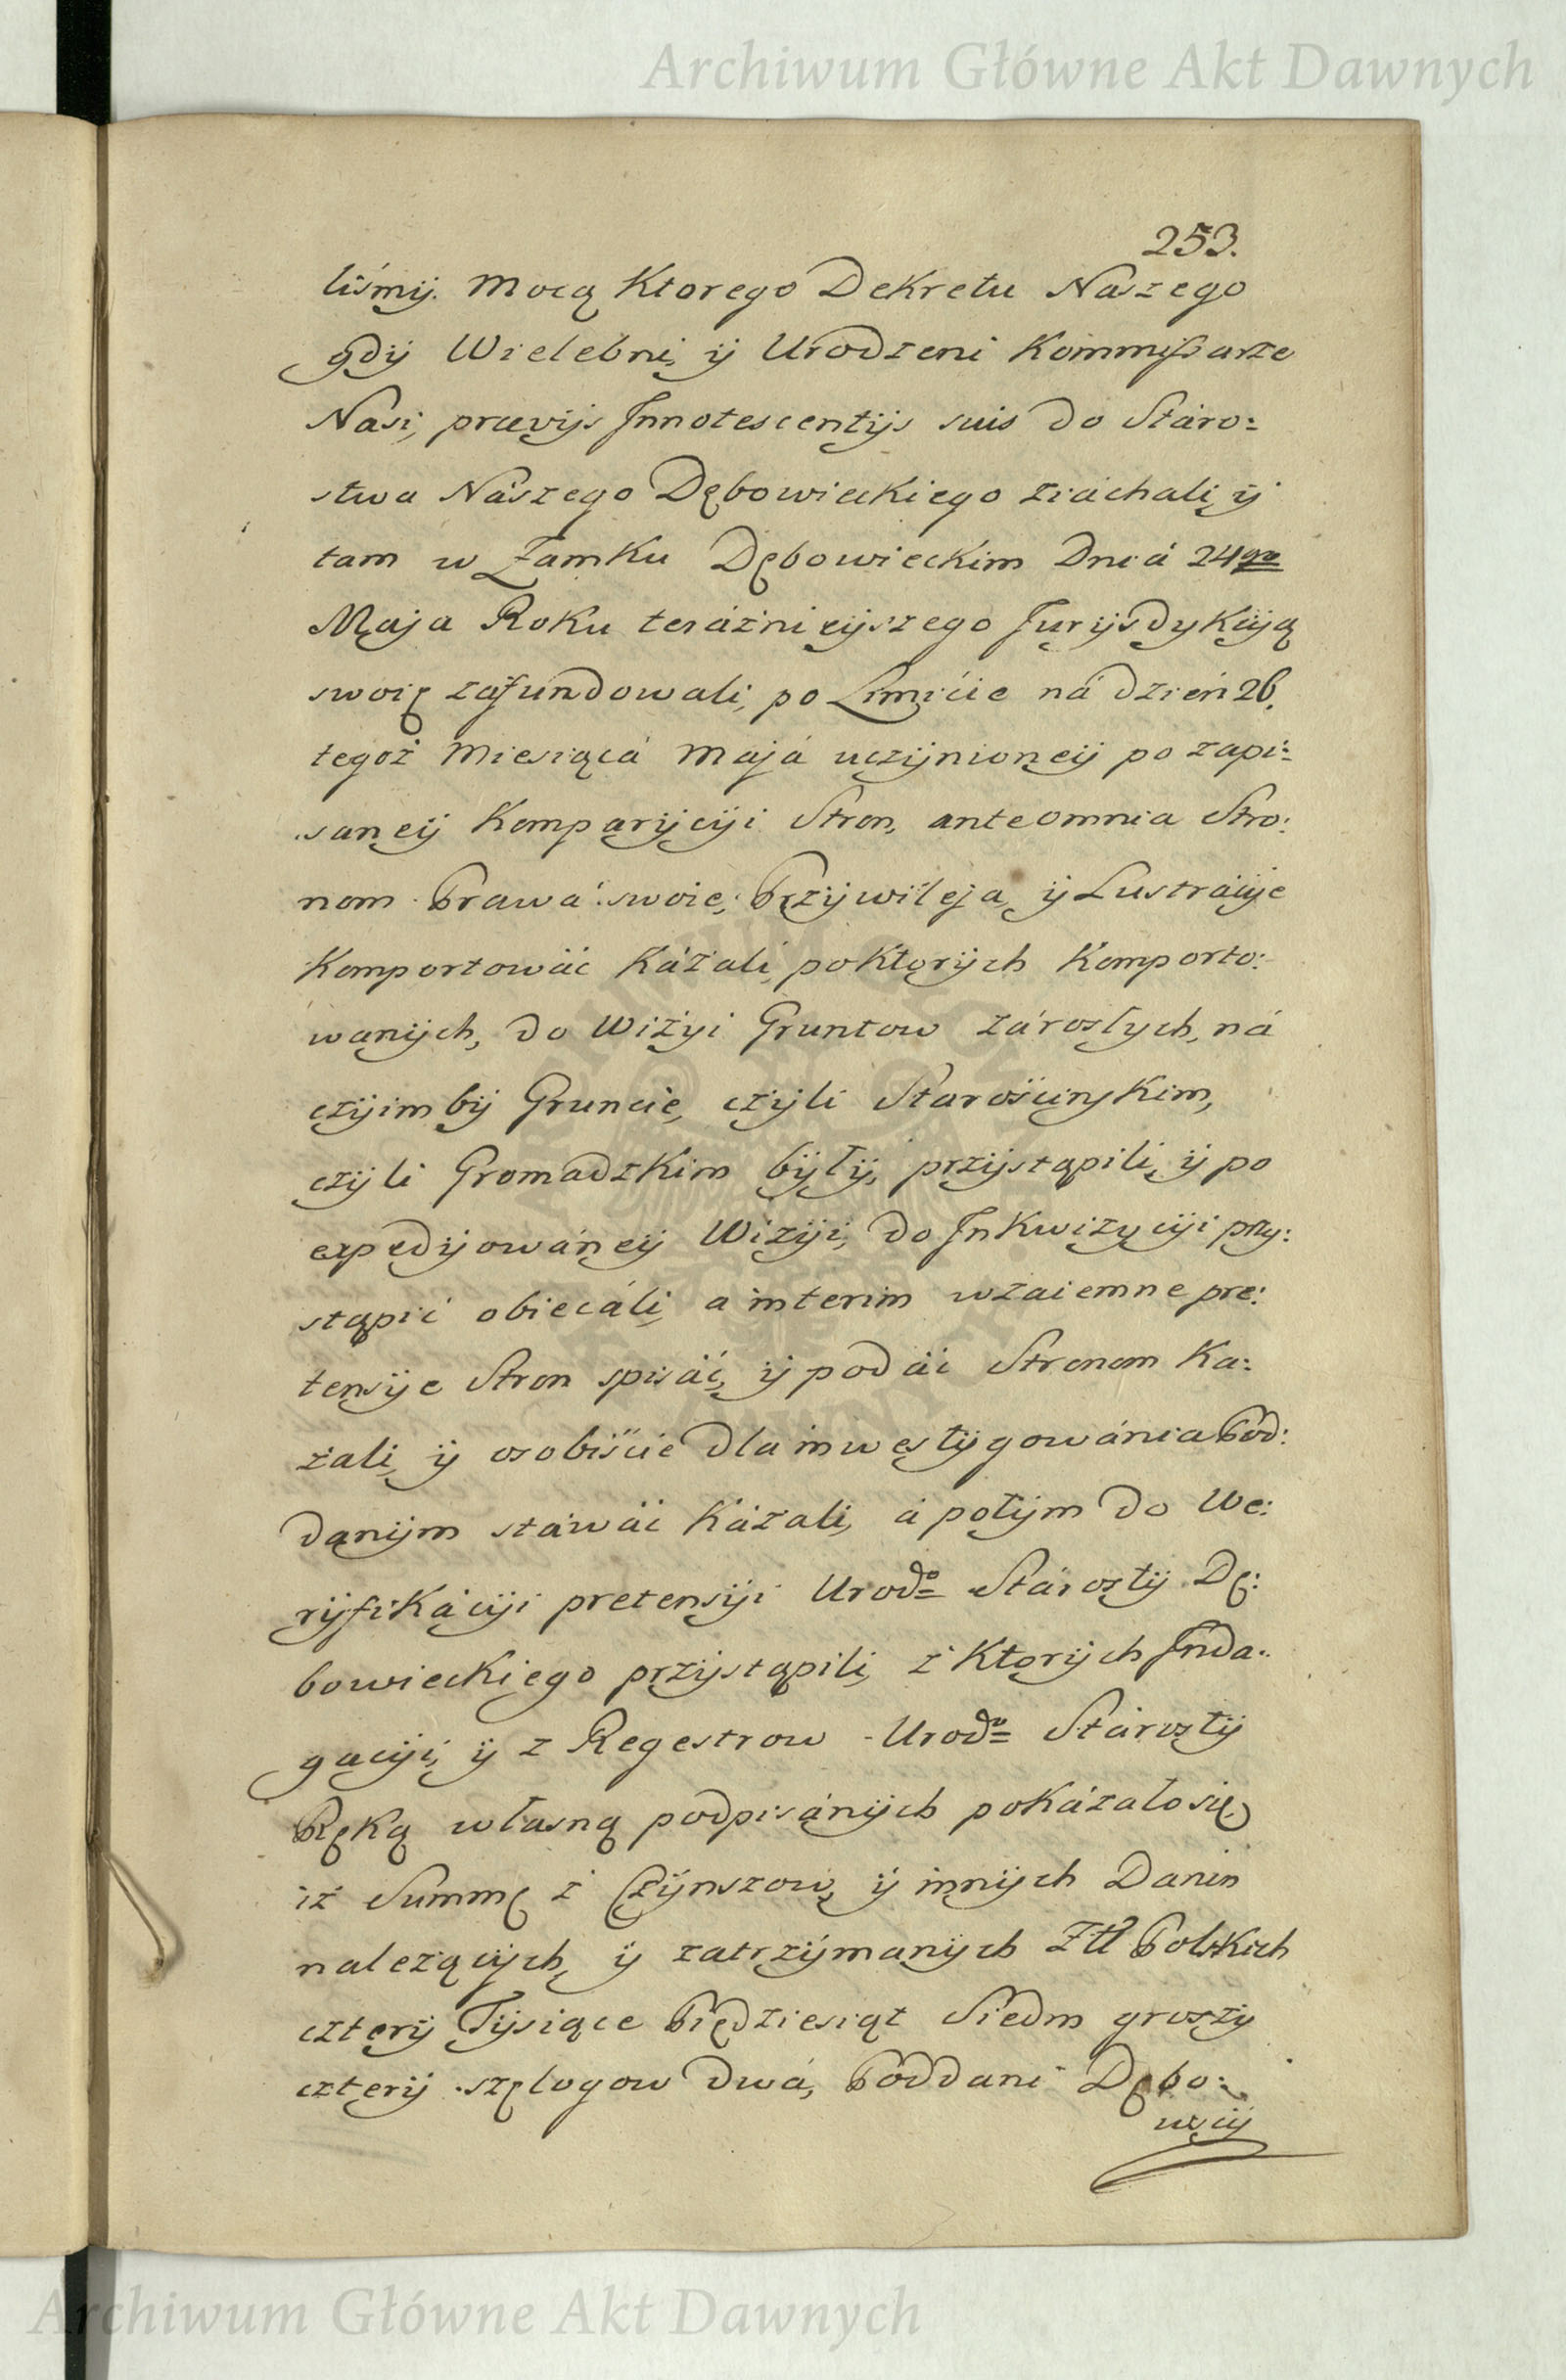 Archiwum Główne Akt Dawnych
253.
liśmy. Mocą Ktorego Dekretu Naszego
gdÿ Wielebni, ÿ Urodzeni Kommissarze
Nasi, prævijs Innotescentijs suis do Stáro:
stwa Nászego Dębowieckiego ziáchali, ÿ
tam w Zamku Dębowieckim Dniá 24go
Maja Roku teráźnieÿszego Jurÿsdykcÿą
swoię zafundowali, po Limićie ná dzień 26.
tegoż Miesiącá Májá uczÿnioneÿ po zapi:
saneÿ Komparÿcÿi Stron, ante omnia Stro:
nom Prawá swoie, Przÿwileja, ÿ Lustrácÿe
Komportowáć Kázáli, po Ktorÿch Komporto:
wanÿch, do Wizÿi Gruntow zárosłych, ná
czÿim bÿ Gruncie, czÿli Starośćinskim,
czÿli Gromadzkim bÿłÿ, przÿstąpili, ÿ po
expedÿowáneÿ Wizÿi, do Inkwizycÿi przy:
stąpić obiecáli, a interim wzaiemne pre:
tensÿe Stron spisáć, ÿ podáć Stronom Ka:
zali, ÿ osobiśćie dla inwestÿgowánia Pod:
danÿm stáwáć Kázáli, á potÿm do We:
rÿfikácÿi pretensÿi Urodo Stárostÿ Dę:
bowieckiego przÿstąpili, z Ktorÿch Inda:
gacÿi, ÿ z Regestrow Urodo Stárostÿ
Ręką własną podpisánÿch pokázáło się,
iż Summę z Czÿnszow, ÿ innÿch Danin
należącÿch, ÿ zatrzÿmanÿch Złł Polskich
czterÿ Tÿsiące Pięćdziesiąt Siedm groszy
czterÿ szelogow dwá, Poddani Dębo:
wscÿ
Archiwum Główne Akt Dawnych